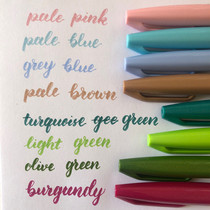 pale pink
pale blue
grey blue
pale brown
turquoise geo green
light green
olive green
burgundy